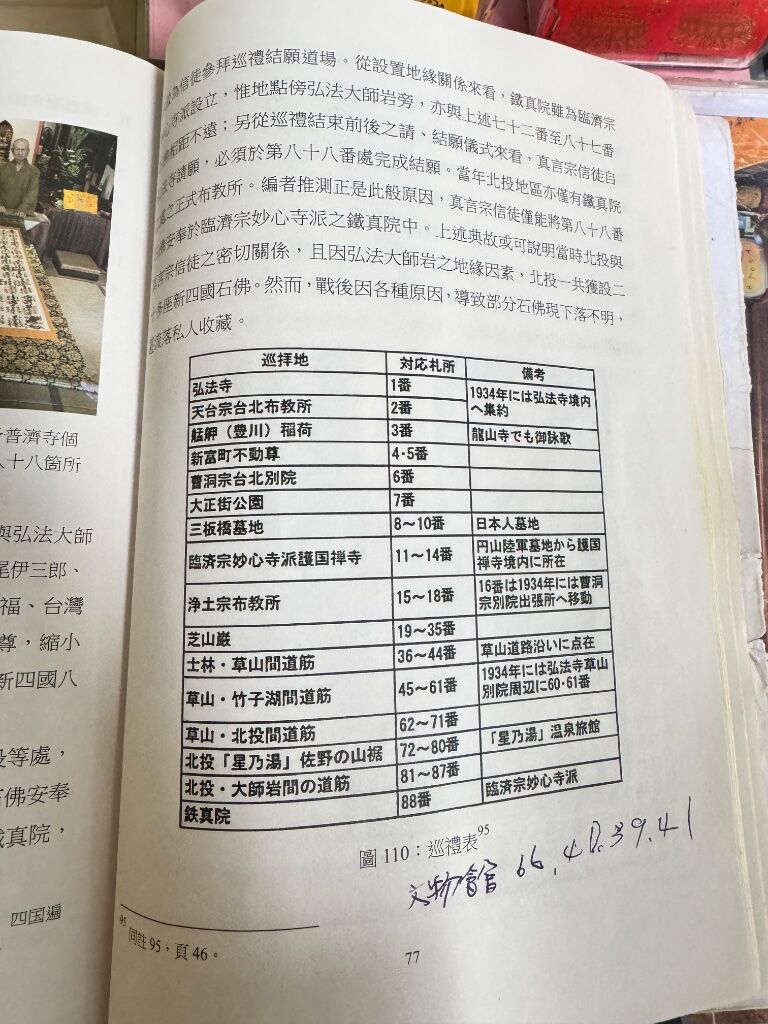 普濟寺個
八十八箇所
與弘法大師
尾伊三郎、
福、台灣
尊，縮小
新四國八
設等處，
石佛安奉
鐵真院，
四国遍
為信徒參拜巡禮結願道場。從設置地緣關係來看，鐵真院雖為臨濟宗
心寺派設立，惟地點傍弘法大師岩旁，亦與上述七十二番至八十七番
相距不遠；另從巡禮結束前後之請、結願儀式來看，真言宗信徒自
寺請願，必須於第八十八番處完成結願。當年北投地區亦僅有鐵真院
之正式布教所。編者推測正是此般原因，真言宗信徒僅能將第八十八番
佛安奉於臨濟宗妙心寺派之鐵真院中。上述典故或可說明當時北投與
真言宗信徒之密切關係，且因弘法大師岩之地緣因素，北投一共獲設二
多座新四國石佛。然而，戰後因各種原因，導致部分石佛現下落不明，
流落私人收藏。
巡拝地 対応札所 備考
弘法寺 1番 1934年には弘法寺境内
へ集約
天台宗台北布教所 2番
艋舺（豊川）稲荷 3番 龍山寺でも御詠歌
新富町不動尊 4·5番
曹洞宗台北別院 6番
大正街公園 7番
三板橋墓地 8～10番 日本人墓地
臨済宗妙心寺派護国禅寺 11～14番 円山陸軍墓地から護国
禅寺境内に所在
浄土宗布教所 15～18番 16番は1934年には曹洞
宗別院出張所へ移動
芝山巌 19～35番
士林・草山間道筋 36～44番 草山道路沿いに点在
草山・竹子湖間道筋 45～61番 1934年には弘法寺草山
別院周辺に60·61番
草山・北投間道筋 62～71番
北投「星乃湯」佐野の山裾 72～80番 「星乃湯」温泉旅館
北投・大師岩間の道筋 81～87番
鉄真院 88番 臨済宗妙心寺派
圖 110：巡禮表95
文物會館 66.
39.41
95 同註 95，頁 46。
77